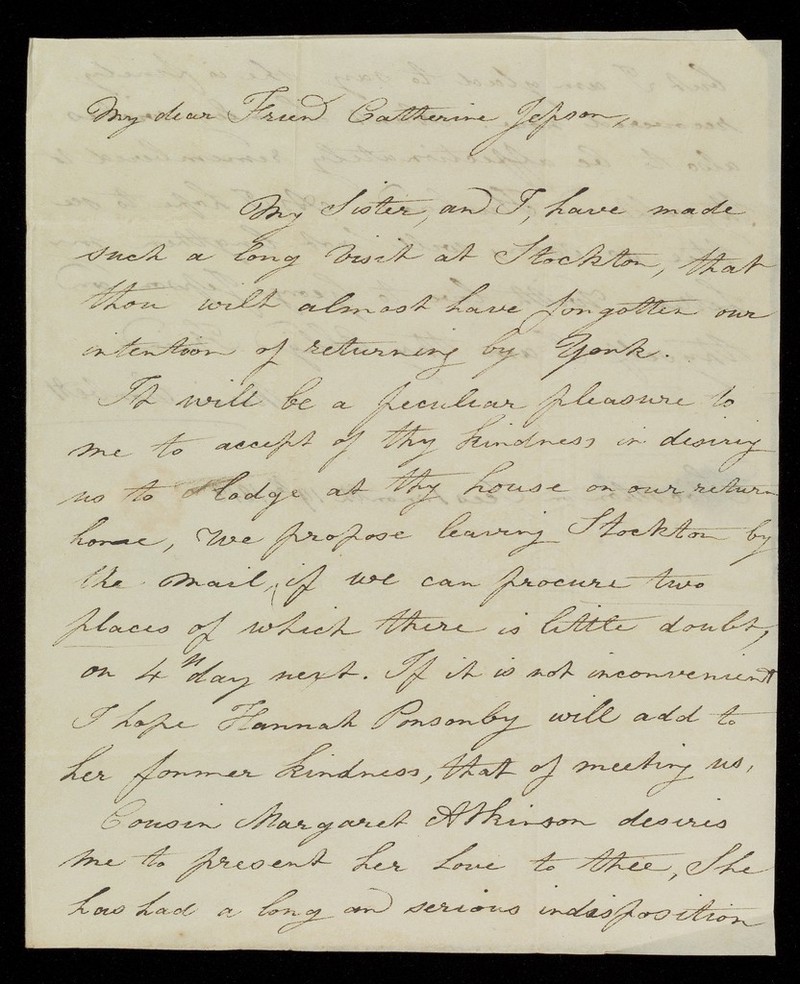 My dear Friend Catherine Jepson,
My Sister, and I, have made
such a long visit at Stockton, that
thou wilt almost have forgotten our
intention of returning by York.
It will be a peculiar pleasure to
me to accept of thy kindness in desiring
us to lodge at thy house on our return
home, We propose leaving Stockton by
the Mail, if we can procure two
places of which there is little doubt,
on 4th day next. If it is not inconvenient
I hope Hannah Ponsonby will add to
her former kindness, that of meeting us,
Cousin Margaret Atkinson desires
me to present her love to thee, She
has had a long and serious indisposition